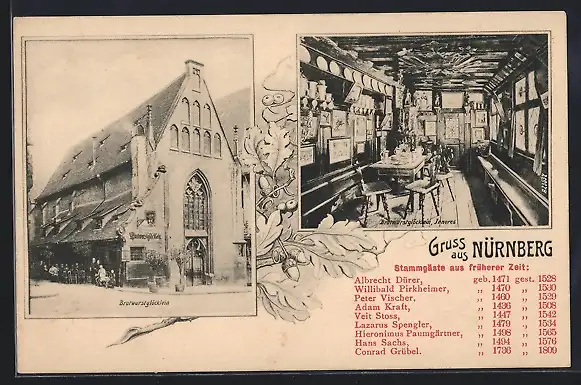 Bratwurstglöcklein
Bratwurstglöcklein
Bratwurstglöcklein, Inneres
Gruss aus NÜRNBERG
Stammgäste aus früherer Zeit:
Albrecht Dürer, geb. 1471 gest. 1528
Willibald Pirkheimer, „ 1470 „ 1530
Peter Vischer, „ 1460 „ 1529
Adam Kraft, „ 1436 „ 1508
Veit Stoss, „ 1447 „ 1542
Lazarus Spengler, „ 1479 „ 1534
Hieronimus Paumgärtner, „ 1498 „ 1565
Hans Sachs, „ 1494 „ 1576
Conrad Grübel. „ 1736 „ 1809